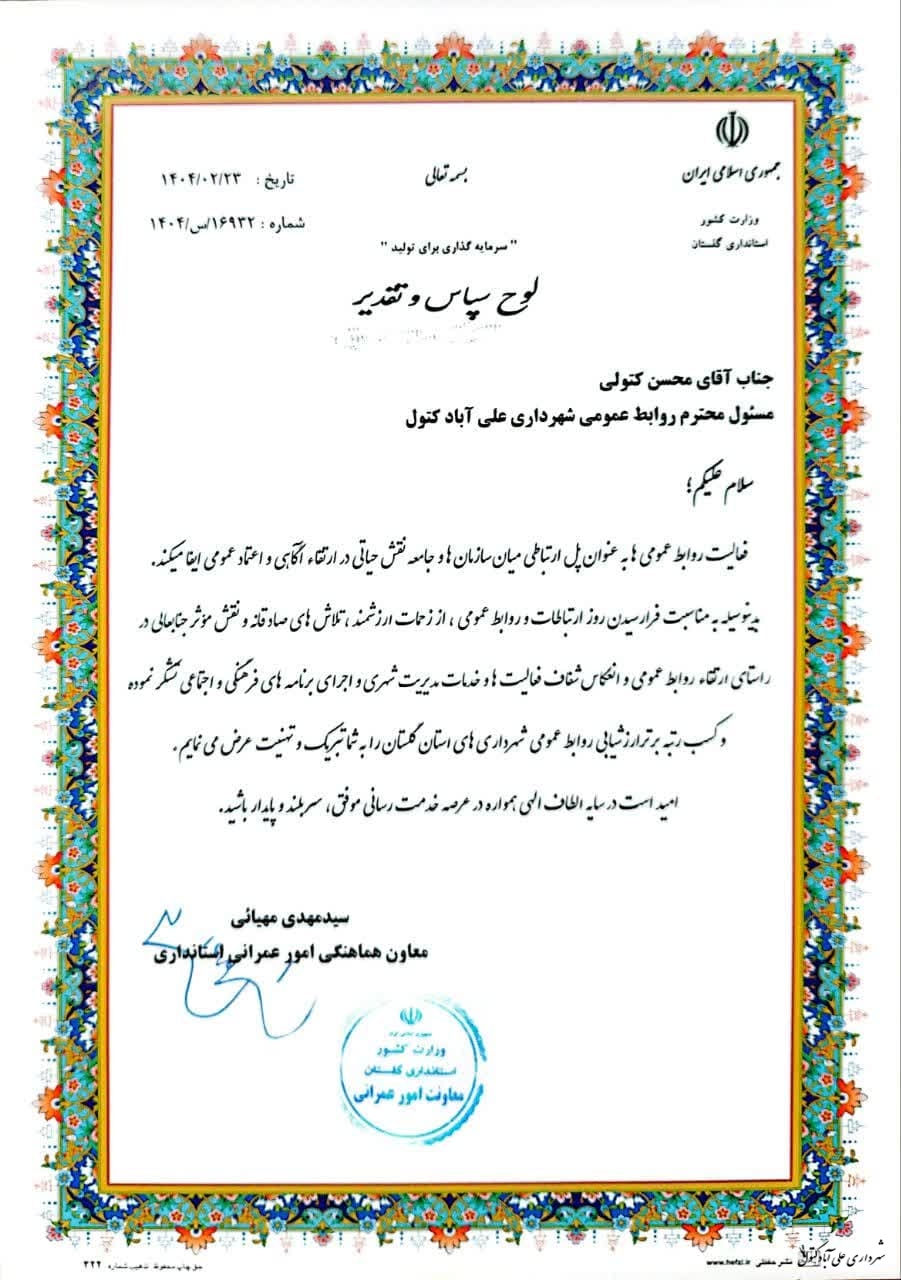 جمهوری اسلامی ایران
وزارت کشور
استانداری گلستان
بسمه تعالی
تاریخ : ۱۴۰۴/۰۲/۲۳
شماره : ۱۶۹۳۲/س/۱۴۰۴
" سرمایه گذاری برای تولید "
لوح سپاس و تقدیر
جناب آقای محسن کتولی
مسئول محترم روابط عمومی شهرداری علی آباد کتول
سلام علیکم؛
فعالیت روابط عمومی ها به عنوان پل ارتباطی میان سازمان ها و جامعه نقش حیاتی در ارتقاء آگاهی و اعتماد عمومی ایفا میکند.
بدینوسیله به مناسبت فرارسیدن روز ارتباطات و روابط عمومی ، از زحمات ارزشمند ، تلاش های صادقانه و نقش مؤثر جنابعالی در
راستای ارتقاء روابط عمومی و انعکاس شفاف فعالیت ها و خدمات مدیریت شهری و اجرای برنامه های فرهنگی و اجتماعی تشکر نموده
و کسب رتبه برتر ارزشیابی روابط عمومی شهرداری های استان گلستان را به شما تبریک و تهنیت عرض می نمایم .
امید است در سایه الطاف الهی همواره در عرصه خدمت رسانی موفق، سربلند و پایدار باشید.
سیدمهدی مهیائی
معاون هماهنگی امور عمرانی استانداری
جمهوری اسلامی ایران
وزارت کشور
استانداری گلستان
معاونت امور عمرانی
شهرداری علی آباد کتول
نشر حفظی www.hefzi.ir
حق چاپ محفوظ تذهیب شماره ۲۲۲